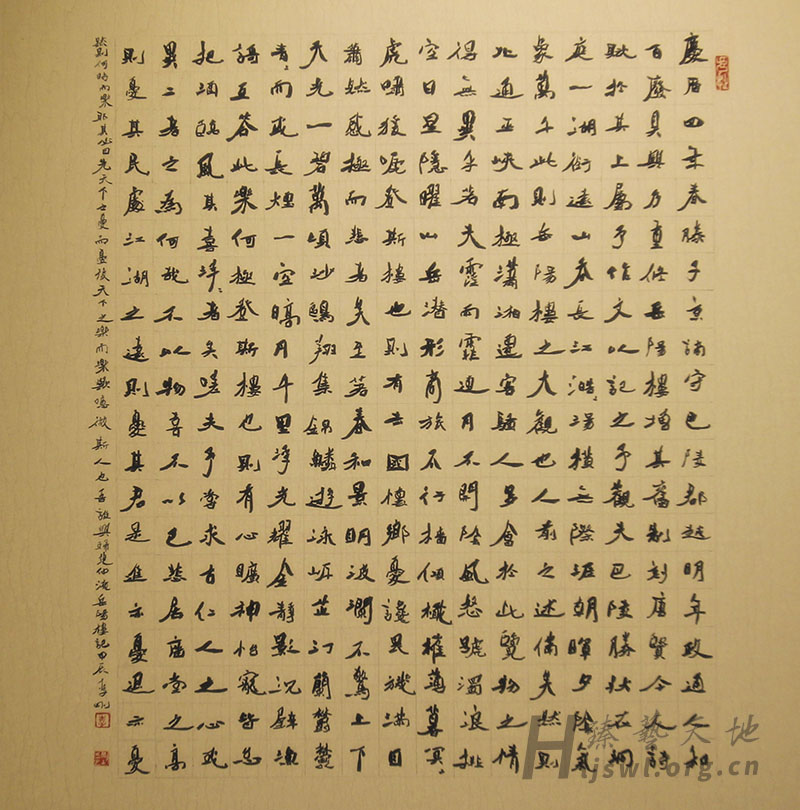 慶历四年春滕子京謫守巴陵郡越明年政通人和
百廢具興乃重修岳陽樓增其舊制刻唐賢今人詩
賦於其上屬予作文以記之予觀夫巴陵勝狀在洞
庭一湖銜遠山吞長江浩〻湯〻橫無際涯朝暉夕陰氣
象萬千此則岳陽樓之大觀也人前之述備矣然則
北通巫峽南極瀟湘遷客騷人多會於此覽物之情
得無異乎若夫霪雨霏連月不開陰風怒號濁浪排
空日星隱曜山岳潛形商旅不行檣傾楫摧薄暮冥〻
虎嘯猿啼登斯樓也則有去國懷鄉憂讒畏譏滿目
蕭然感極而悲者矣至若春和景明波瀾不驚上下
天光一碧萬頃沙鷗翔集錦鱗遊泳岸芷汀蘭鬱鬱
青〻而或長煙一空皓月千里浮光耀金靜影沉璧漁
歌互答此樂何極登斯樓也則有心曠神怡寵辱忘
把酒臨風其喜洋〻者矣嗟夫予嘗求古仁人之心或
異二者之為何哉不以物喜不以己悲居廟堂之高
則憂其民處江湖之遠則憂其君是進亦憂退亦憂
然則何時而樂耶其必曰先天下之憂而憂後天下之樂而樂歟噫微斯人也吾誰與歸范仲淹岳陽樓記甲辰
臻藝天地
Hijswl.org.cn